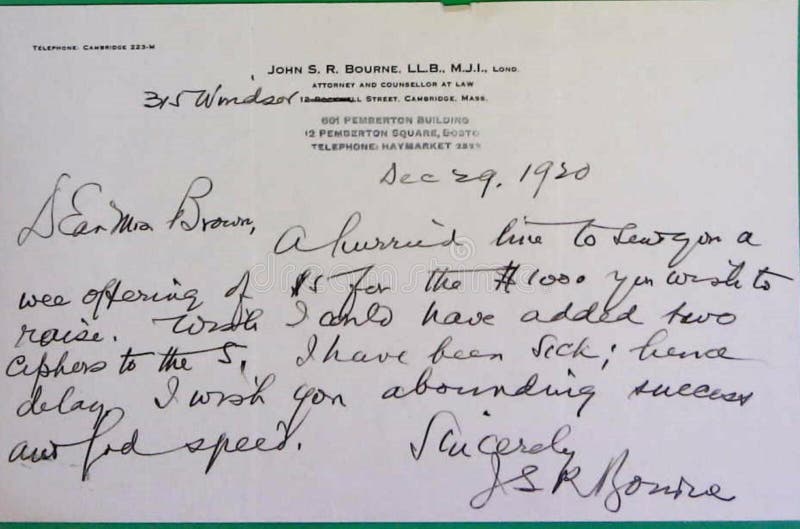 TELEPHONE: CAMBRIDGE 223-M
JOHN S. R. BOURNE, LL.B., M.J.I., LOND.
ATTORNEY AND COUNSELLOR AT LAW
315 Windsor 12 LL STREET, CAMBRIDGE, MASS.
601 PEMBERTON BUILDING
12 PEMBERTON SQUARE, BOSTO
TELEPHONE: HAYMARKET
Dec 29, 1920
DEar Mrs Brown,
A hurried line to send you a
wee offering of $5 for the $1000 you wish to
raise. Wish I could have added two
ciphers to the 5. I have been sick; hence
delay. I wish you abounding success
and God speed.
Sincerely
JSR Bourne
dreamstime